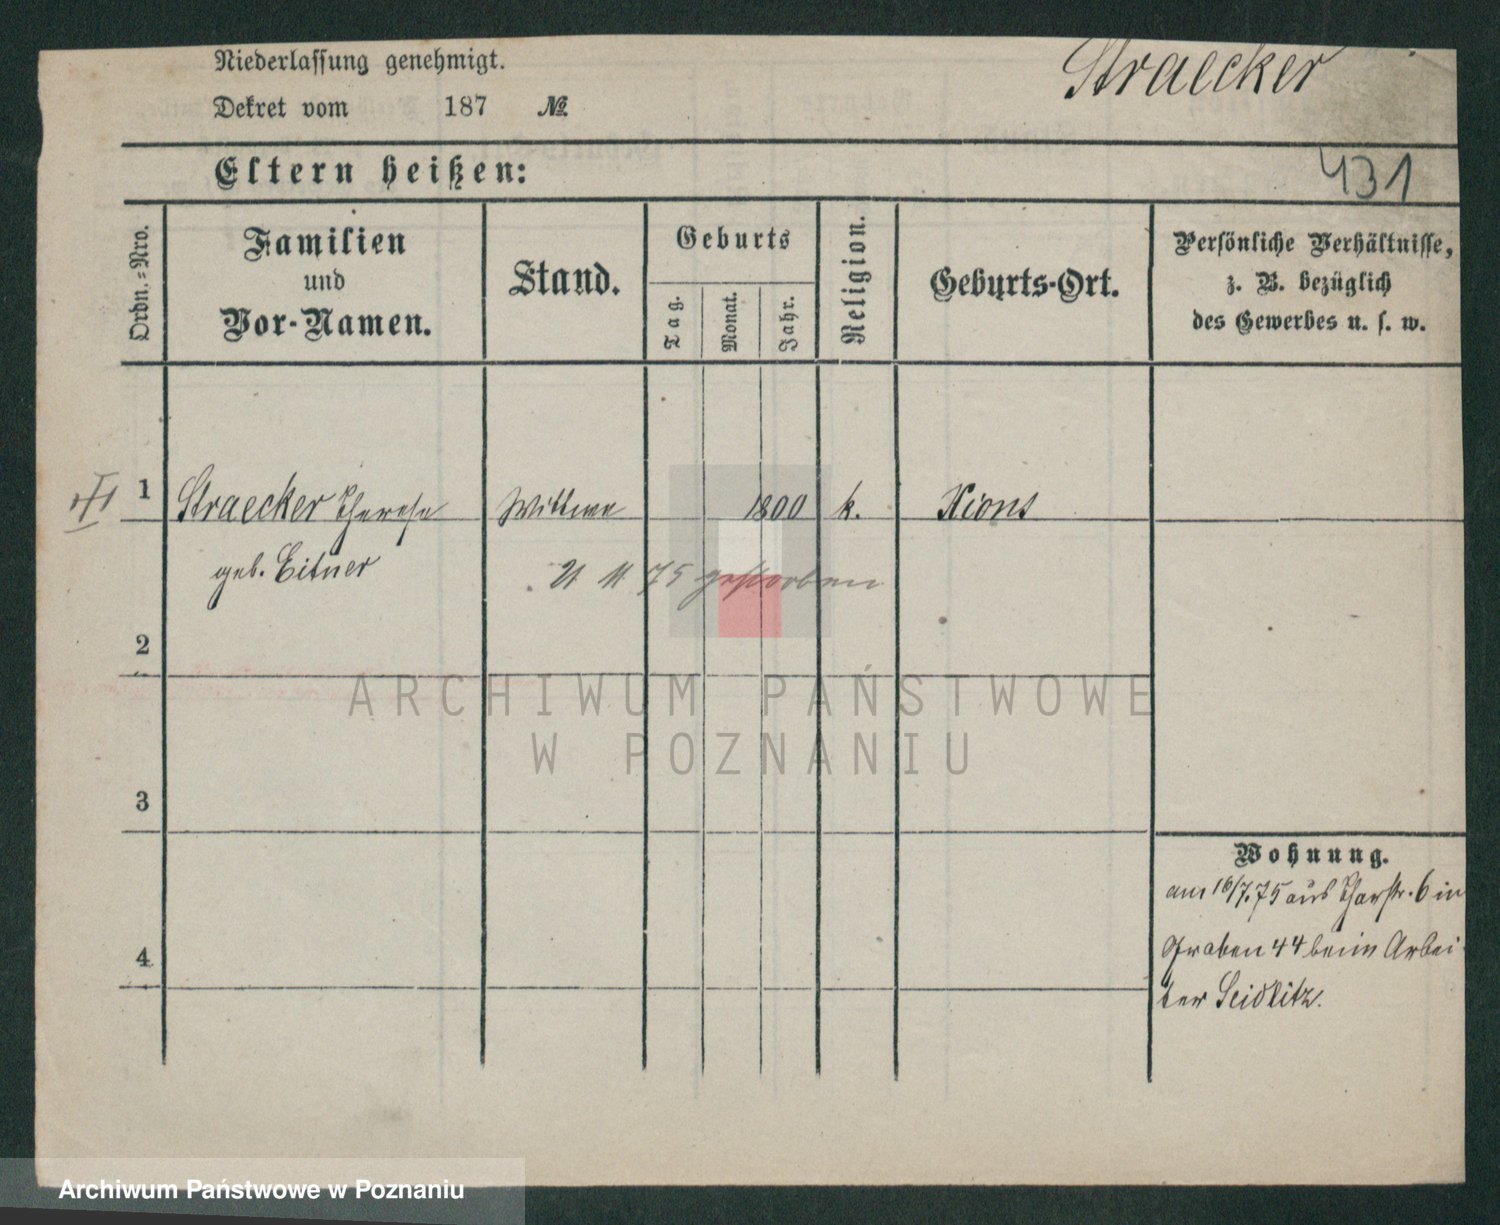 Niederlassung genehmigt.
Straecker
Dekret vom 187 №
Eltern heißen:
431
Ordn.=Nro.
Familien
und
Vor-Namen.
Stand.
Geburts
Tag.
Monat.
Jahr.
Religion.
Geburts-Ort.
Persönliche Verhältnisse,
z. B. bezüglich
des Gewerbes u. s. w.
1 Straecker Therese Wittwe 1800 k. Xions
geb. Eitner
75 gestorben
2
ARCHIWUM PAŃSTWOWE
W POZNANIU
3
Wohnung.
am 16/7.75 aus Thorstr. 6 in
Graben 44 beim Arbei
4
ter Seidlitz.
Archiwum Państwowe w Poznaniu